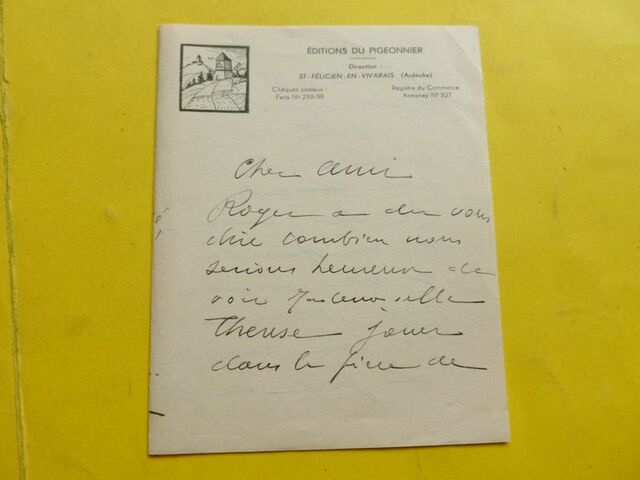 ÉDITIONS DU PIGEONNIER
Direction :
ST-FÉLICIEN-EN-VIVARAIS (Ardèche)
Chèques postaux :
Paris N° 239-38
Registre du Commerce
Annonay N° 327
Cher Ami
Roger a du vous
dire combien nous
serions heureux de
voir Mademoiselle
Therese jouer
dans la pièce de